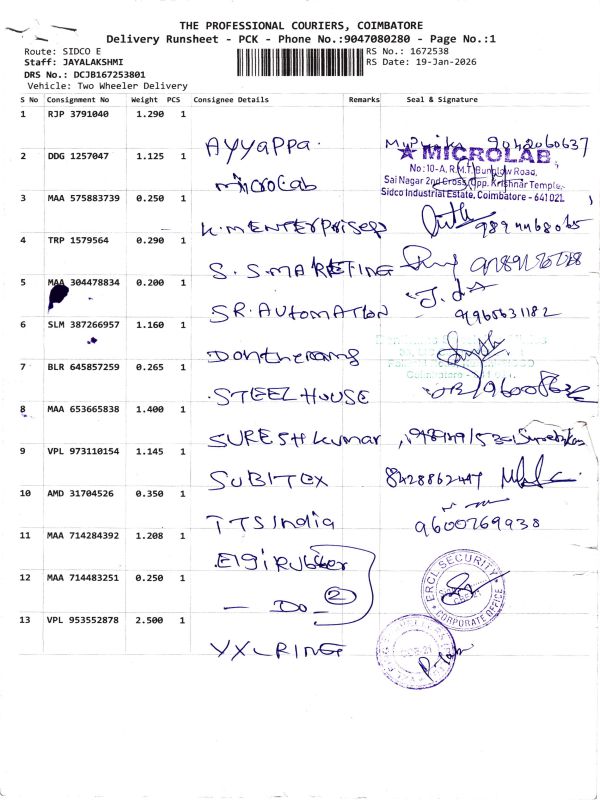 THE PROFESSIONAL COURIERS, COIMBATORE
Delivery Runsheet - PCK - Phone No.:9047080280 - Page No.:1
Route: SIDCO E
RS No.: 1672538
Staff: JAYALAKSHMI
RS Date: 19-Jan-2026
DRS No.: DCJB167253801
Vehicle: Two Wheeler Delivery
S No Consignment No Weight PCS Consignee Details Remarks Seal & Signature
1 RJP 3791040 1.290 1 Ayyappa.
2 DDG 1257047 1.125 1 microlab
★ MICROLAB
No:10-A, R.M.T. Bunglow Road,
Sai Nagar 2nd Cross, Opp. Krishnar Temple,
Sidco Industrial Estate, Coimbatore - 641 021.
3 MAA 575883739 0.250 1 K.M ENTERPrises
4 TRP 1579564 0.290 1 S.S.MARKETING
5 MAA 304478834 0.200 1 SR.AUTOMATION 9965631182
6 SLM 387266957 1.160 1
7 BLR 645857259 0.265 1 STEEL HOUSE
8 MAA 653665838 1.400 1 SURESH Kumar
9 VPL 973110154 1.145 1 SUBITEX
10 AMD 31704526 0.350 1 TTS India 9600769938
11 MAA 714284392 1.208 1 Elgi Rubber
12 MAA 714483251 0.250 1 — Do — 2
ERCL SECURITY
CORPORATE OFFICE
13 VPL 953552878 2.500 1